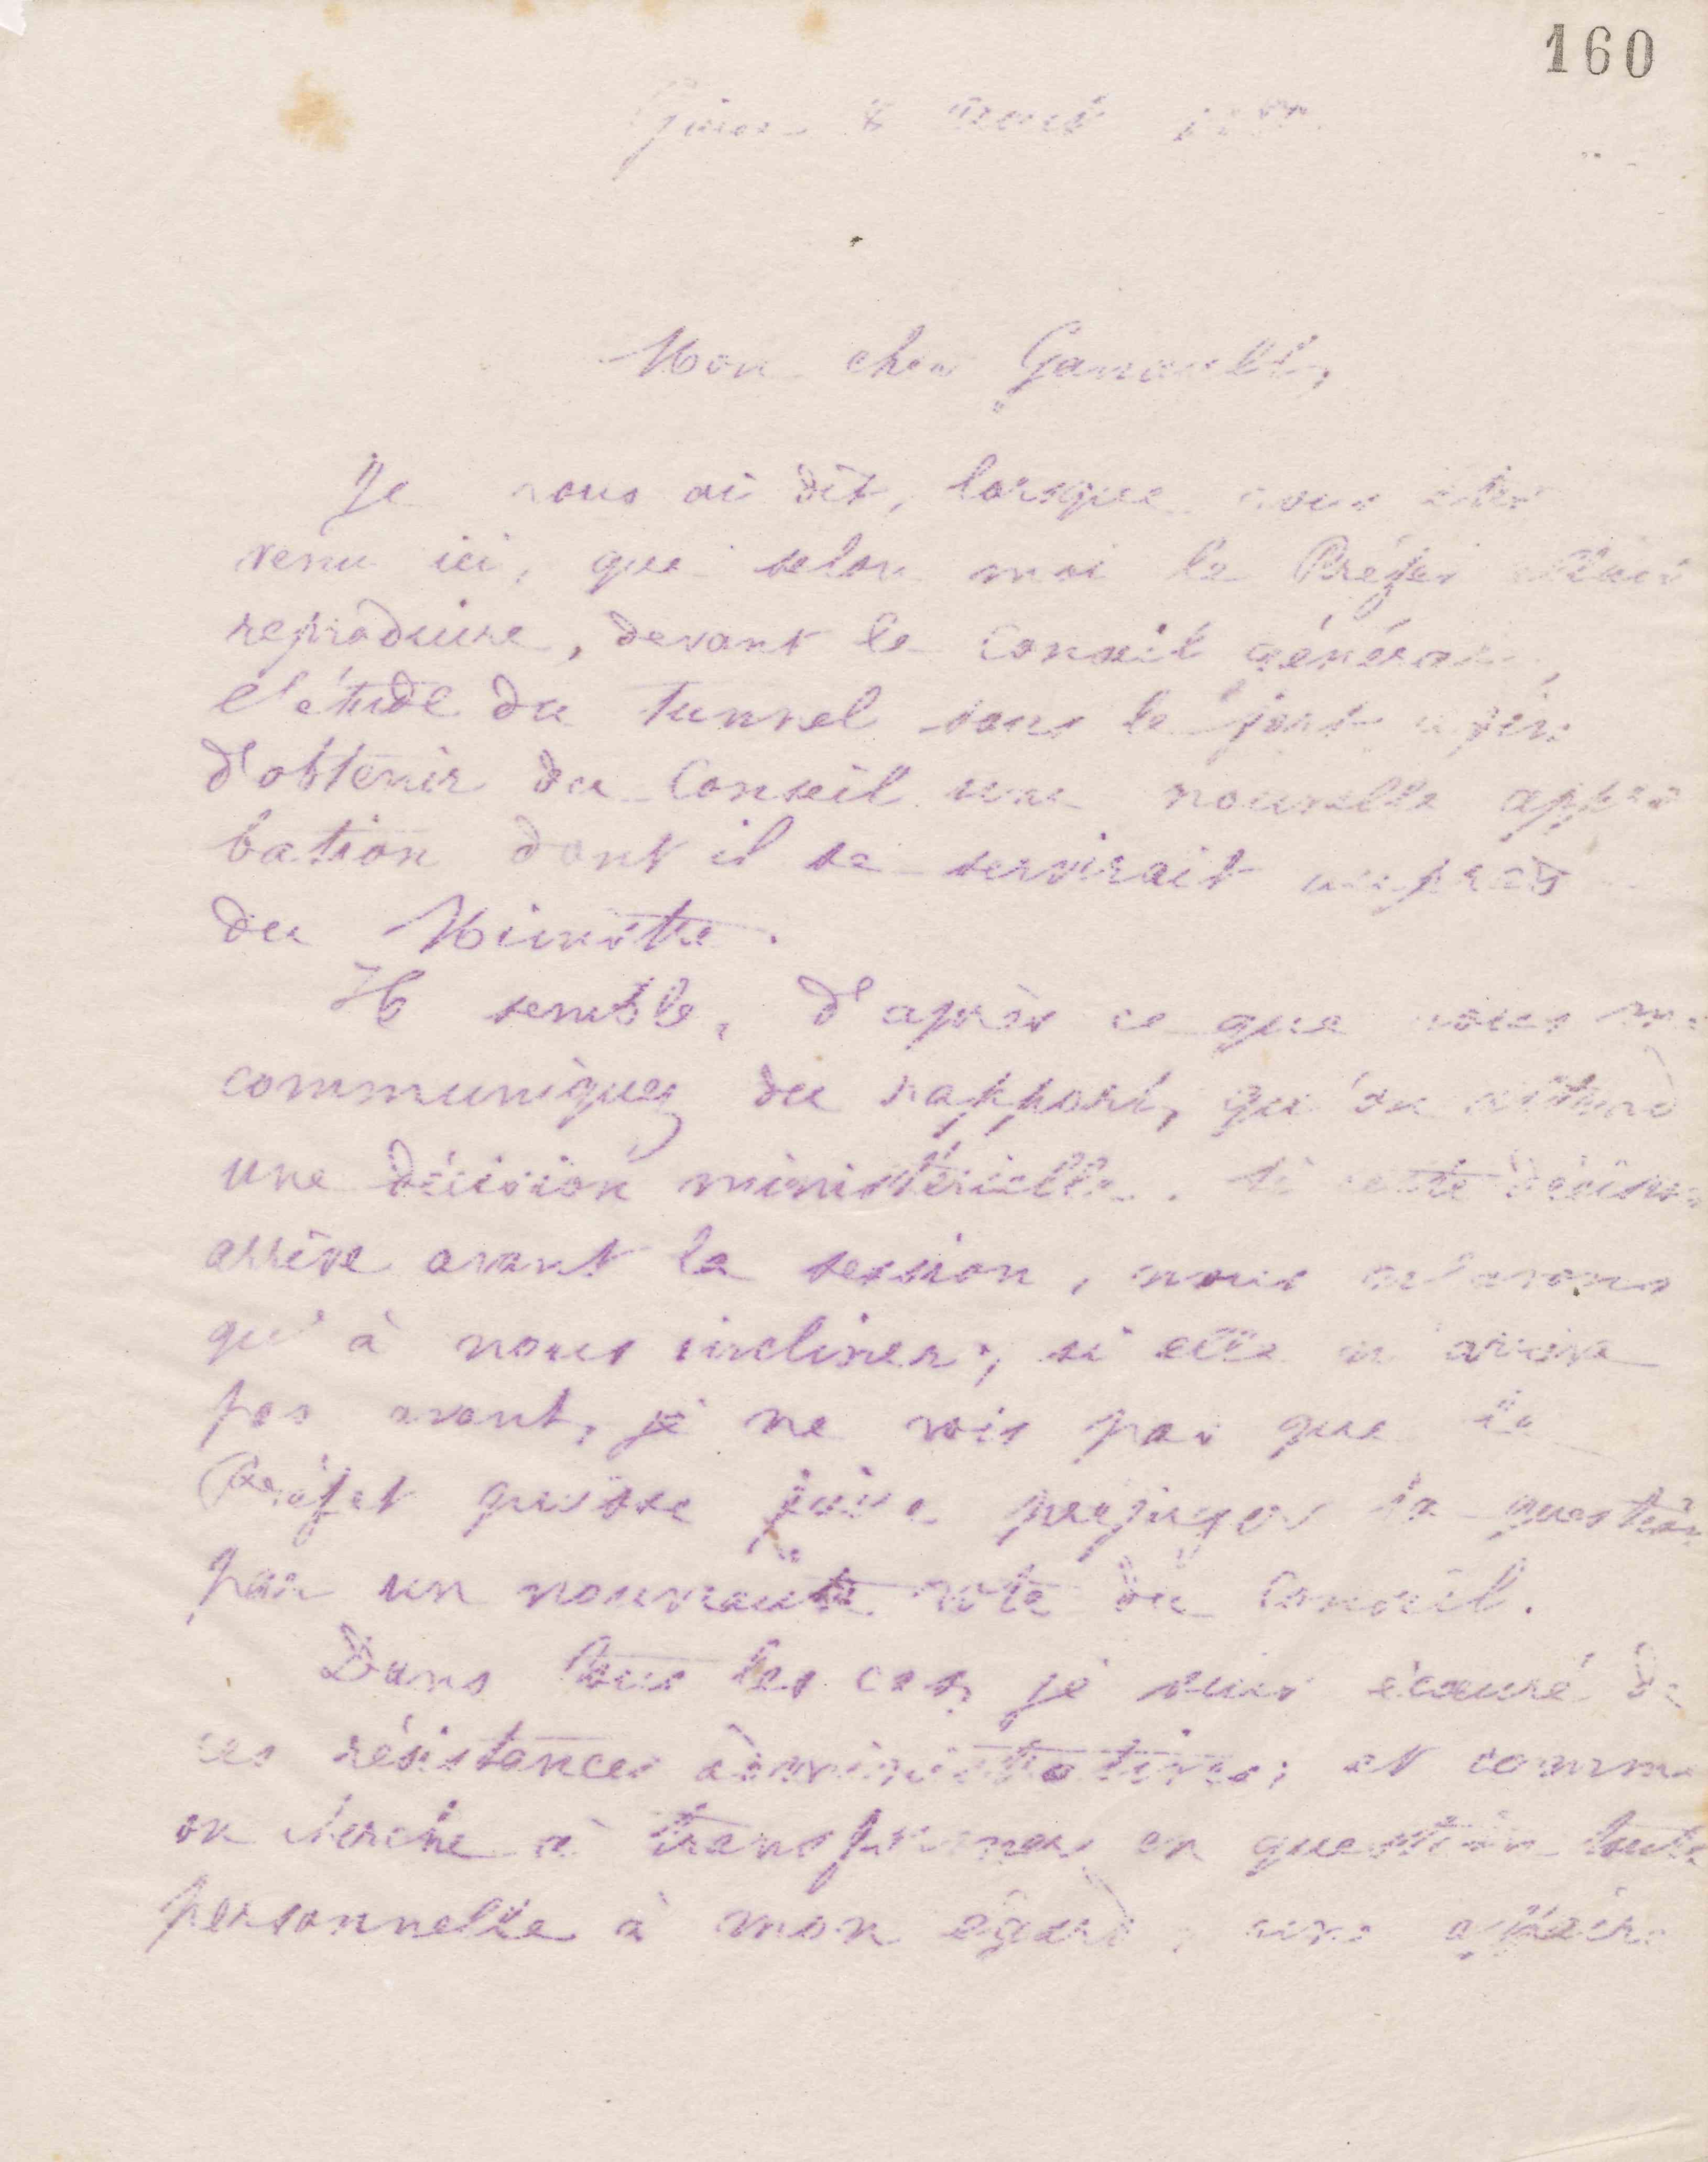 160
Guise 8 Août
Mon cher Ganault,
Je vous ai dit, lorsque vous êtes
venu ici, que selon moi le Préfet allait
reproduire, devant le conseil général,
l'étude du tunnel sous le
d'obtenir du Conseil une nouvelle appro
bation dont il se servirait auprès
du Ministre.
Il semble, d'après ce que vous me
communiquez du rapport, qu'on attend
une décision ministérielle. Si cette décision
arrive avant la session, nous n'avons
qu'à nous incliner; si elle n'arrive
pas avant, je ne vois pas que le
Préfet puisse faire préjuger la question
par un nouveau vote du Conseil.
Dans tous les cas, je suis écœuré de
ces résistances administratives; et comme
on cherche à transformer en question toute
personnelle à mon égard, une affaire